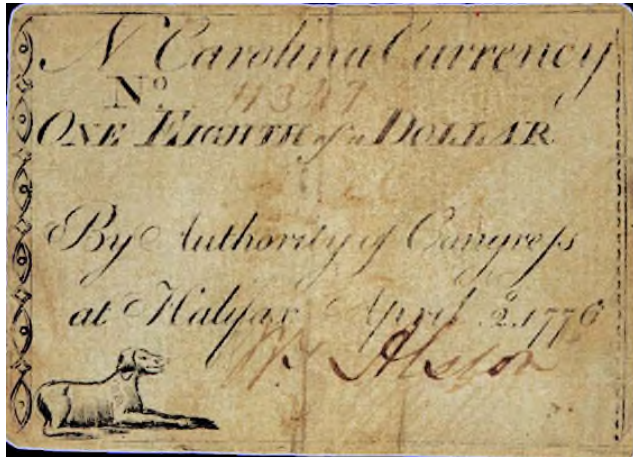 N Carolina Currency
No. 4347
ONE EIGHTH of a DOLLAR
By Authority of Congreſs
at Halifax April 2, 1776
Alston